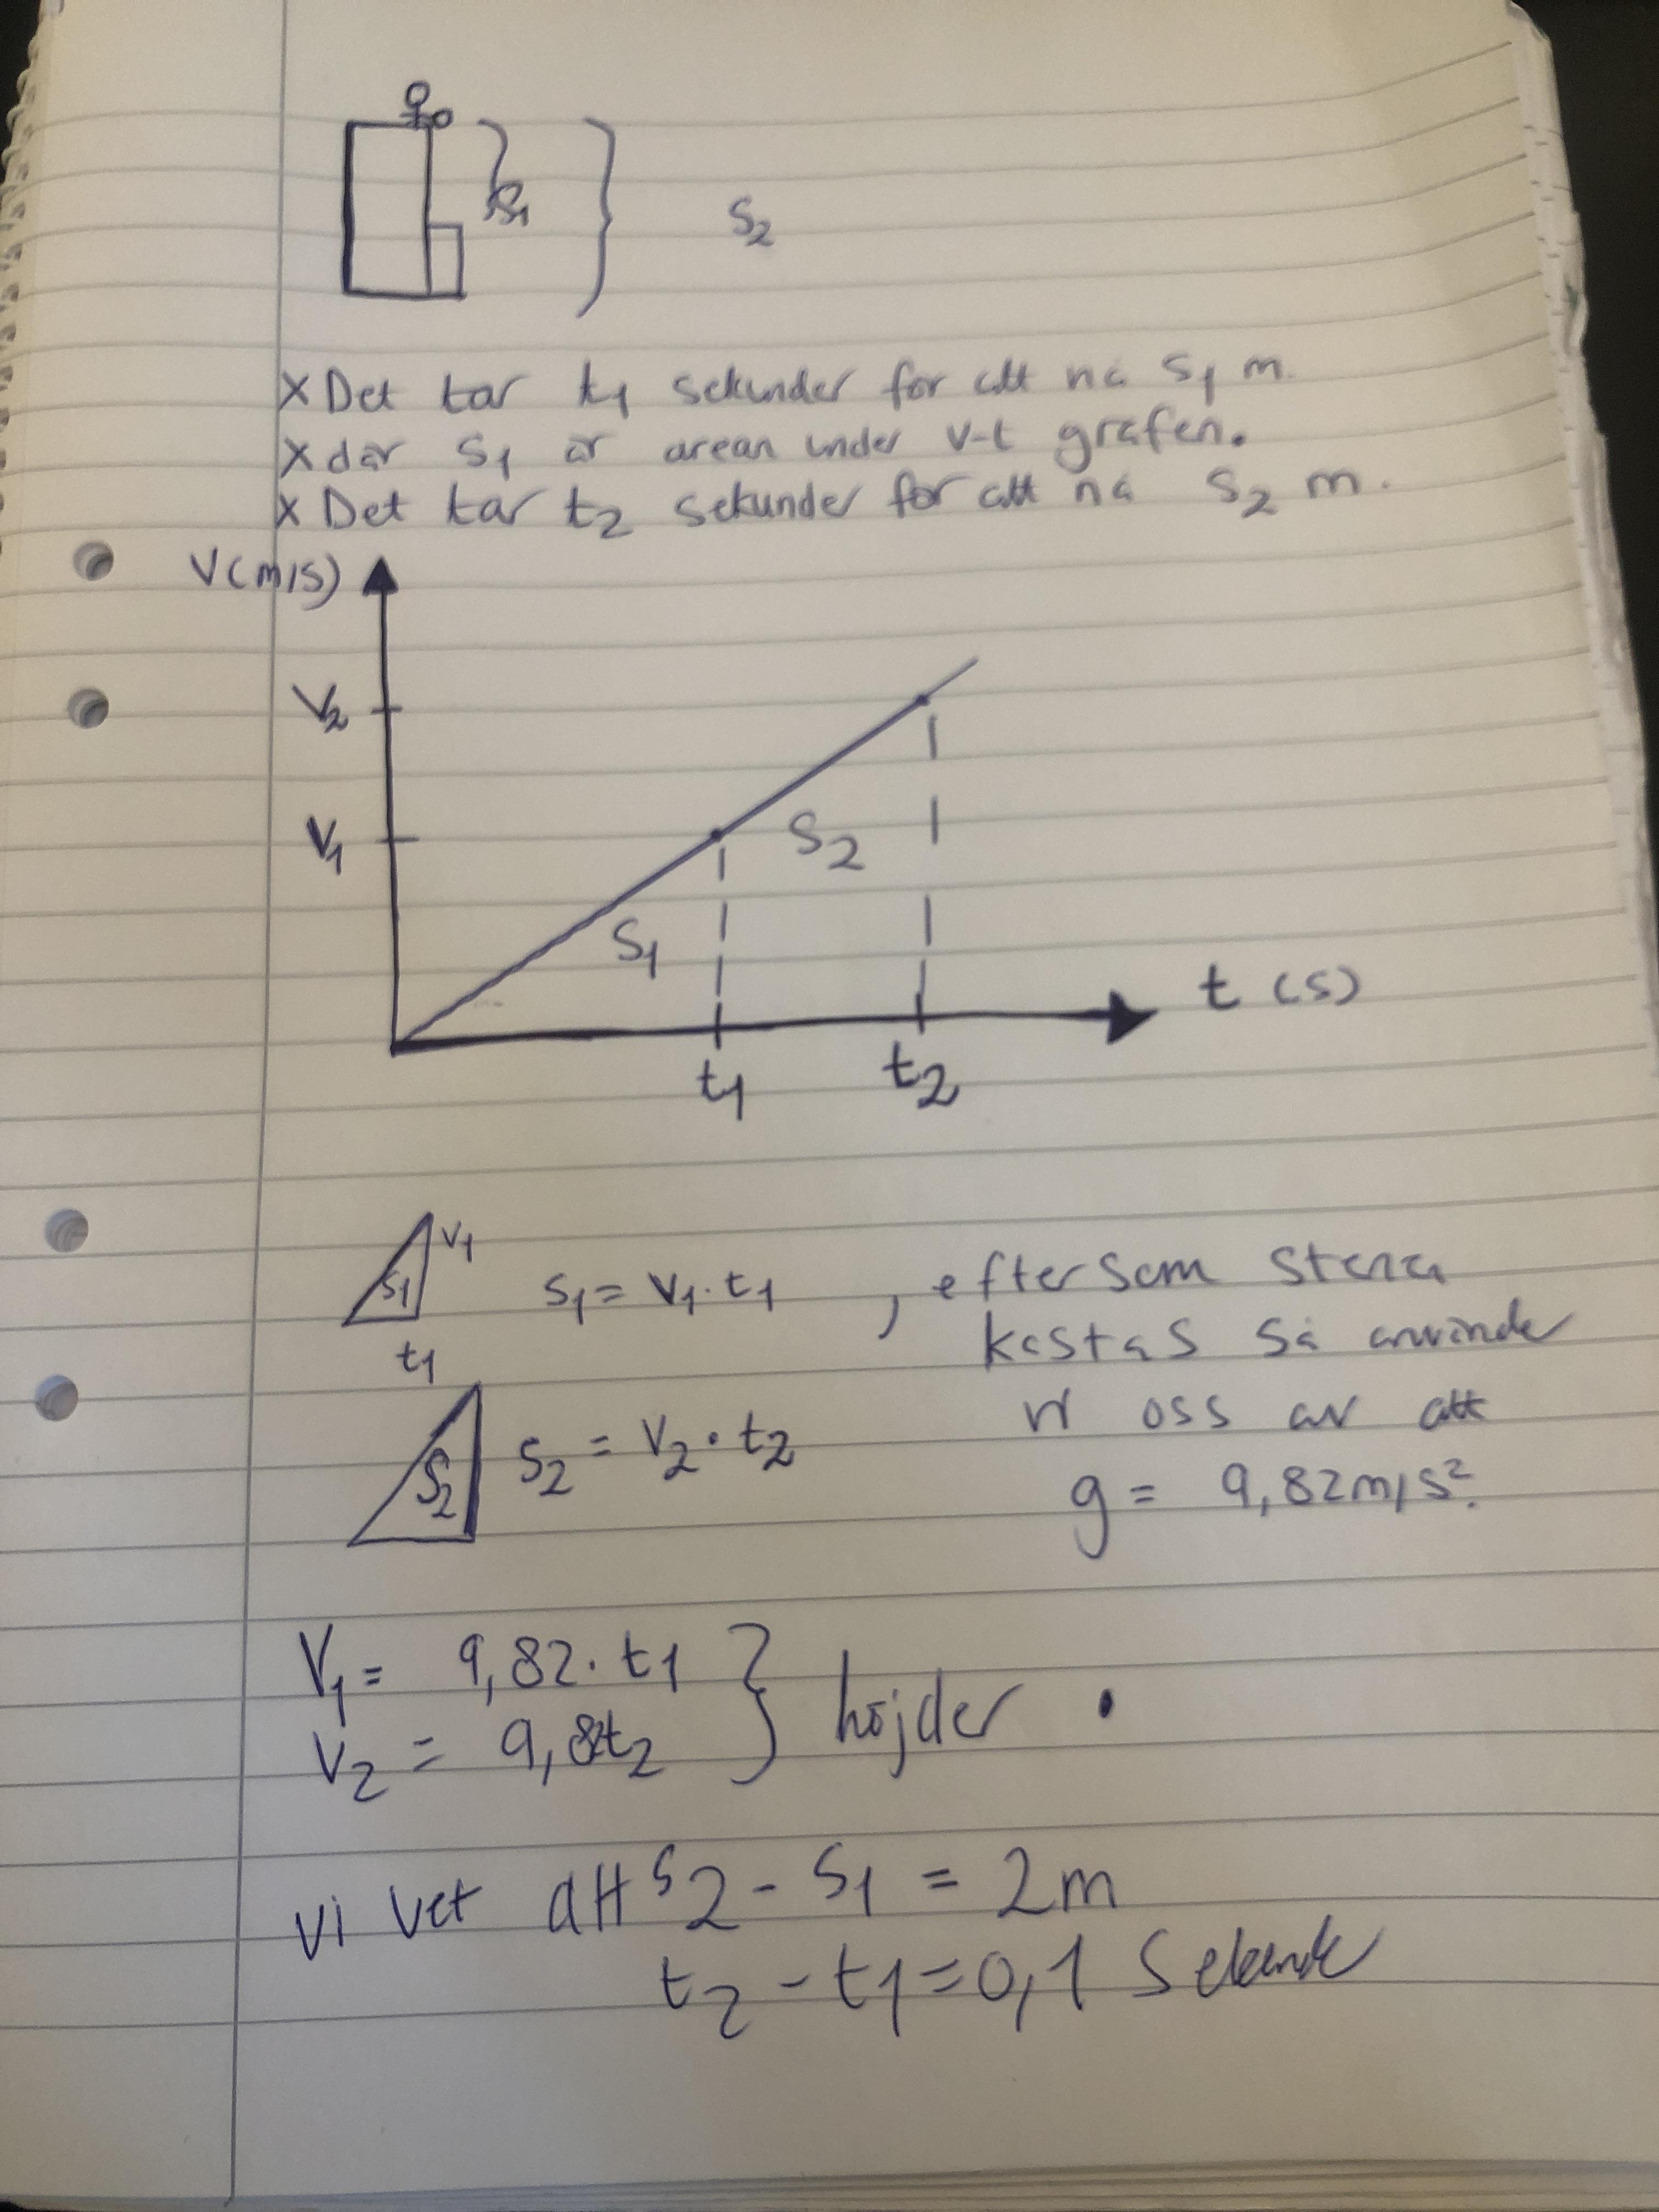 S1
S2
X Det tar t1 sekunder för att nå S1 m.
X där S1 är arean under v-t grafen.
X Det tar t2 sekunder för att nå S2 m.
V(m/s)
V2
V1
S2
S1
t (s)
t1
t2
V1
S1
S1 = V1 · t1 , eftersom stena
t1
kastas så använder
S2
S2 = V2 · t2
vi oss av att
g = 9,82m/s².
V1 = 9,82 · t1 } höjder .
V2 = 9,82t2
Vi vet att S2 - S1 = 2m
t2 - t1 = 0,1 Sekunde